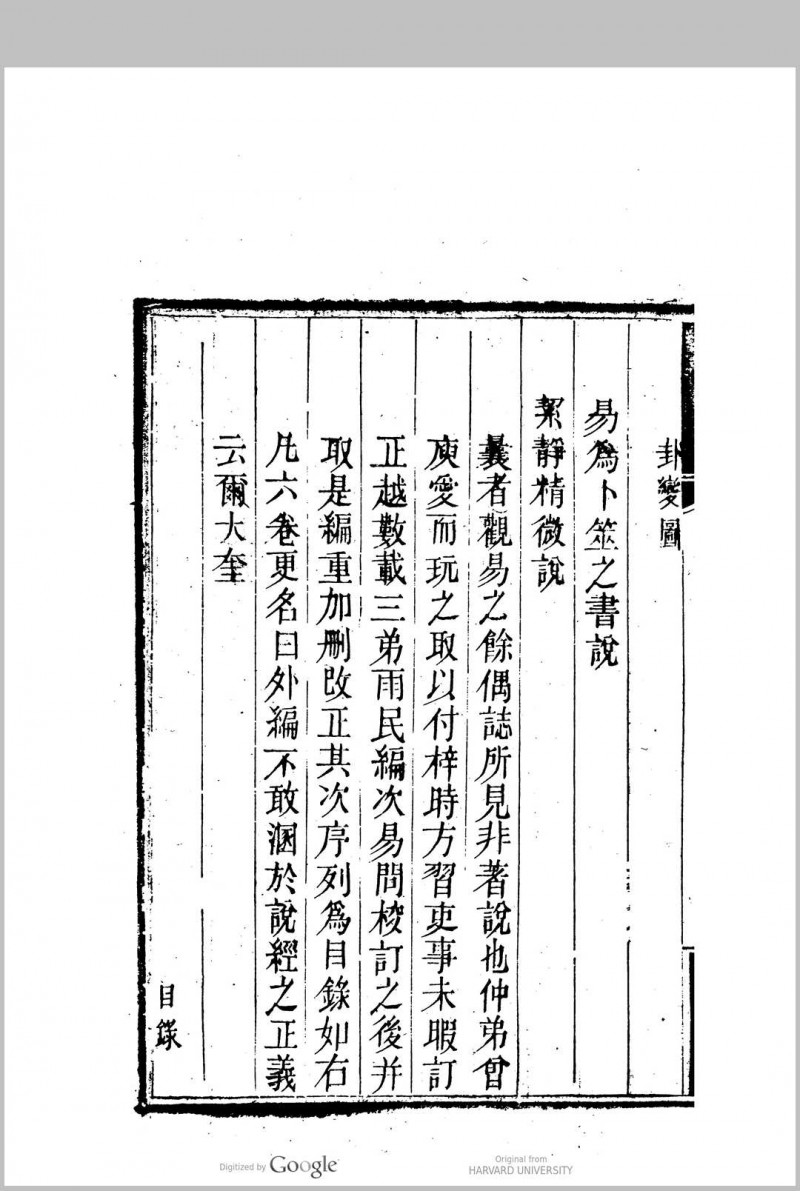 卦變圖
易爲卜筮之書說
絜靜精微說
曩者觀易之餘偶誌所見非著說也仲弟曾
庚愛而玩之取以付梓時方習吏事未暇訂
正越數載三弟雨民編次易問校訂之後并
取是編重加刪改正其次序列爲目錄如右
凡六卷更名曰外編不敢溷於說經之正義
云爾大奎
目錄
Digitized by Google
Original from
HARVARD UNIVERSITY